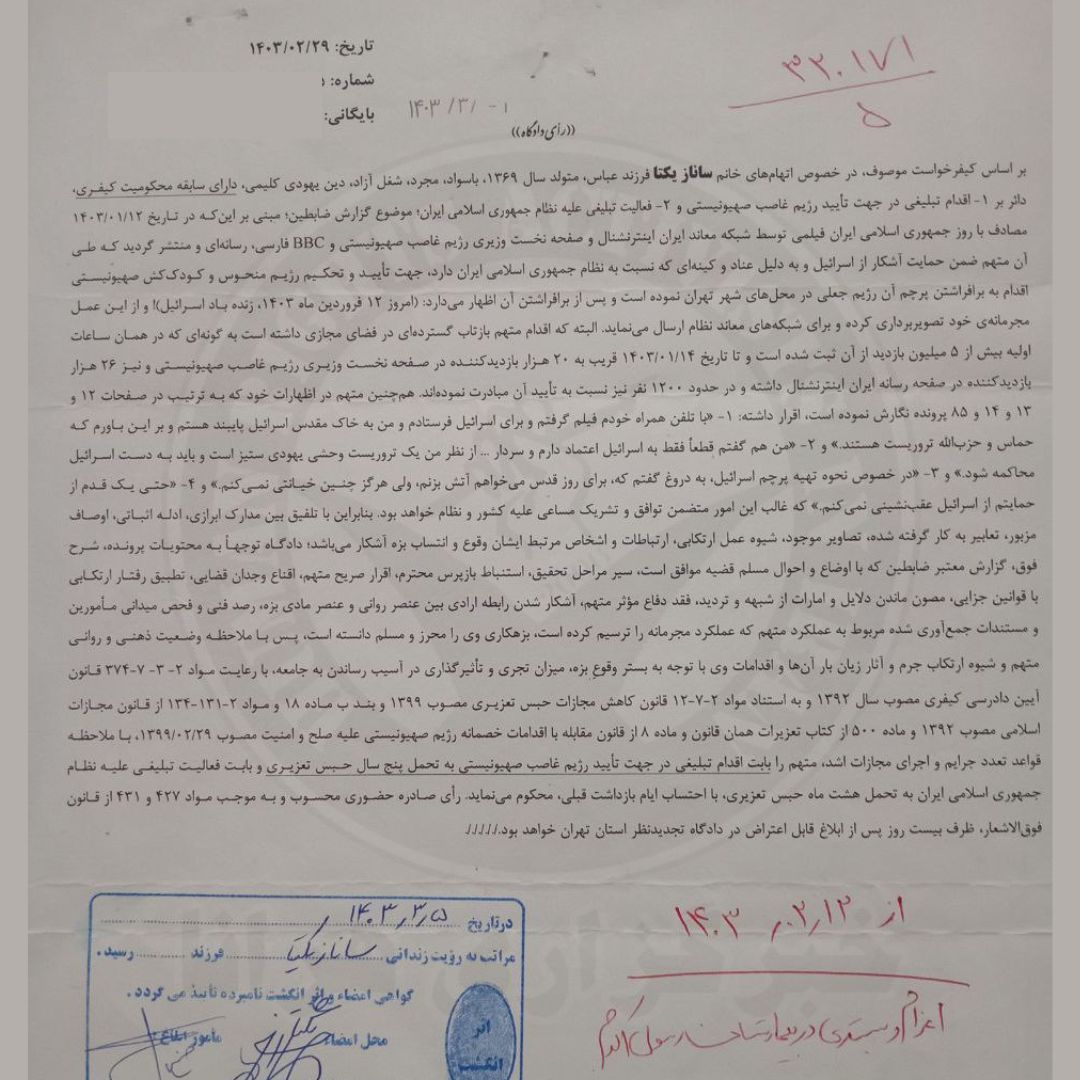 تاریخ: ۱۴۰۳/۰۲/۲۹
شماره:
بایگانی:
۳۳۰۱۷۱
۵
۱۴۰۳/۳/۰۱
((رأی دادگاه))
بر اساس کیفرخواست موصوف، در خصوص اتهام‌های خانم ساناز یکتا فرزند عباس، متولد سال ۱۳۶۹، باسواد، مجرد، شغل آزاد، دین یهودی کلیمی، دارای سابقه محکومیت کیفری،
دائر بر ۱- اقدام تبلیغی در جهت تأیید رژیم غاصب صهیونیستی و ۲- فعالیت تبلیغی علیه نظام جمهوری اسلامی ایران؛ موضوع گزارش ضابطین؛ مبنی بر این‌که در تاریخ ۱۴۰۳/۰۱/۱۲
مصادف با روز جمهوری اسلامی ایران فیلمی توسط شبکه معاند ایران اینترنشنال و صفحه نخست وزیری رژیم غاصب صهیونیستی و BBC فارسی، رسانه‌ای و منتشر گردید که طی
آن متهم ضمن حمایت آشکار از اسرائیل و به دلیل عناد و کینه‌ای که نسبت به نظام جمهوری اسلامی ایران دارد، جهت تأیید و تحکیم رژیم منحوس و کودک‌کش صهیونیستی
اقدام به برافراشتن پرچم آن رژیم جعلی در محل‌های شهر تهران نموده است و پس از برافراشتن آن اظهار می‌دارد: (امروز ۱۲ فروردین ماه ۱۴۰۳، زنده باد اسرائیل)! و از این عمل
مجرمانه‌ی خود تصویربرداری کرده و برای شبکه‌های معاند نظام ارسال می‌نماید. البته که اقدام متهم بازتاب گسترده‌ای در فضای مجازی داشته است به گونه‌ای که در همان ساعات
اولیه بیش از ۵ میلیون بازدید از آن ثبت شده است و تا تاریخ ۱۴۰۳/۰۱/۱۴ قریب به ۲۰ هزار بازدیدکننده در صفحه نخست وزیری رژیم غاصب صهیونیستی و نیز ۲۶ هزار
بازدیدکننده در صفحه رسانه ایران اینترنشنال داشته و در حدود ۱۲۰۰ نفر نیز نسبت به تأیید آن مبادرت نموده‌اند. هم‌چنین متهم در اظهارات خود که به ترتیب در صفحات ۱۲ و
۱۳ و ۱۴ و ۸۵ پرونده نگارش نموده است، اقرار داشته: ۱- «با تلفن همراه خودم فیلم گرفتم و برای اسرائیل فرستادم و من به خاک مقدس اسرائیل پایبند هستم و بر این باورم که
حماس و حزب‌الله تروریست هستند.» و ۲- «من هم گفتم قطعاً فقط به اسرائیل اعتماد دارم و سردار ... از نظر من یک تروریست وحشی یهودی ستیز است و باید به دست اسرائیل
محاکمه شود.» و ۳- «در خصوص نحوه تهیه پرچم اسرائیل، به دروغ گفتم که، برای روز قدس می‌خواهم آتش بزنم، ولی هرگز چنین خیانتی نمی‌کنم.» و ۴- «حتی یک قدم از
حمایتم از اسرائیل عقب‌نشینی نمی‌کنم.» که غالب این امور متضمن توافق و تشریک مساعی علیه کشور و نظام خواهد بود. بنابراین با تلفیق بین مدارک ابرازی، ادله اثباتی، اوصاف
مزبور، تعابیر به کار گرفته شده، تصاویر موجود، شیوه عمل ارتکابی، ارتباطات و اشخاص مرتبط ایشان وقوع و انتساب بزه آشکار می‌باشد؛ دادگاه توجهاً به محتویات پرونده، شرح
فوق، گزارش معتبر ضابطین که با اوضاع و احوال مسلم قضیه موافق است، سیر مراحل تحقیق، استنباط بازپرس محترم، اقرار صریح متهم، اقناع وجدان قضایی، تطبیق رفتار ارتکابی
با قوانین جزایی، مصون ماندن دلایل و امارات از شبهه و تردید، فقد دفاع مؤثر متهم، آشکار شدن رابطه ارادی بین عنصر روانی و عنصر مادی بزه، رصد فنی و فحص میدانی مأمورین
و مستندات جمع‌آوری شده مربوط به عملکرد متهم که عملکرد مجرمانه را ترسیم کرده است، بزهکاری وی را محرز و مسلم دانسته است، پس با ملاحظه وضعیت ذهنی و روانی
متهم و شیوه ارتکاب جرم و آثار زیان بار آن‌ها و اقدامات وی با توجه به بستر وقوع بزه، میزان تجری و تأثیرگذاری در آسیب رساندن به جامعه، با رعایت مواد ۲- ۳- ۷-۳۷۴ قانون
آیین دادرسی کیفری مصوب سال ۱۳۹۲ و به استناد مواد ۲-۷-۱۲ قانون کاهش مجازات حبس تعزیری مصوب ۱۳۹۹ و بند ب ماده ۱۸ و مواد ۲-۱۳۱-۱۳۴ از قانون مجازات
اسلامی مصوب ۱۳۹۲ و ماده ۵۰۰ از کتاب تعزیرات همان قانون و ماده ۸ از قانون مقابله با اقدامات خصمانه رژیم صهیونیستی علیه صلح و امنیت مصوب ۱۳۹۹/۰۲/۲۹، با ملاحظه
قواعد تعدد جرایم و اجرای مجازات اشد، متهم را بابت اقدام تبلیغی در جهت تأیید رژیم غاصب صهیونیستی به تحمل پنج سال حبس تعزیری و بابت فعالیت تبلیغی علیه نظام
جمهوری اسلامی ایران به تحمل هشت ماه حبس تعزیری، با احتساب ایام بازداشت قبلی، محکوم می‌نماید. رأی صادره حضوری محسوب و به موجب مواد ۴۲۷ و ۴۳۱ از قانون
فوق‌الاشعار، ظرف بیست روز پس از ابلاغ قابل اعتراض در دادگاه تجدیدنظر استان تهران خواهد بود./././././
درتاریخ ۱۴۰۳٫۳٫۵
مراتب به رؤیت زندانی ساناز یکتا فرزند رسید.
گواهی امضاء و اثر انگشت نامبرده تأیید می گردد.
محل امضاء
مأمور ابلاغ
اثر
انگشت
از ۱۴۰۳٫۲٫۱۲
اعزام و بستری در بیمارستان رسول اکرم